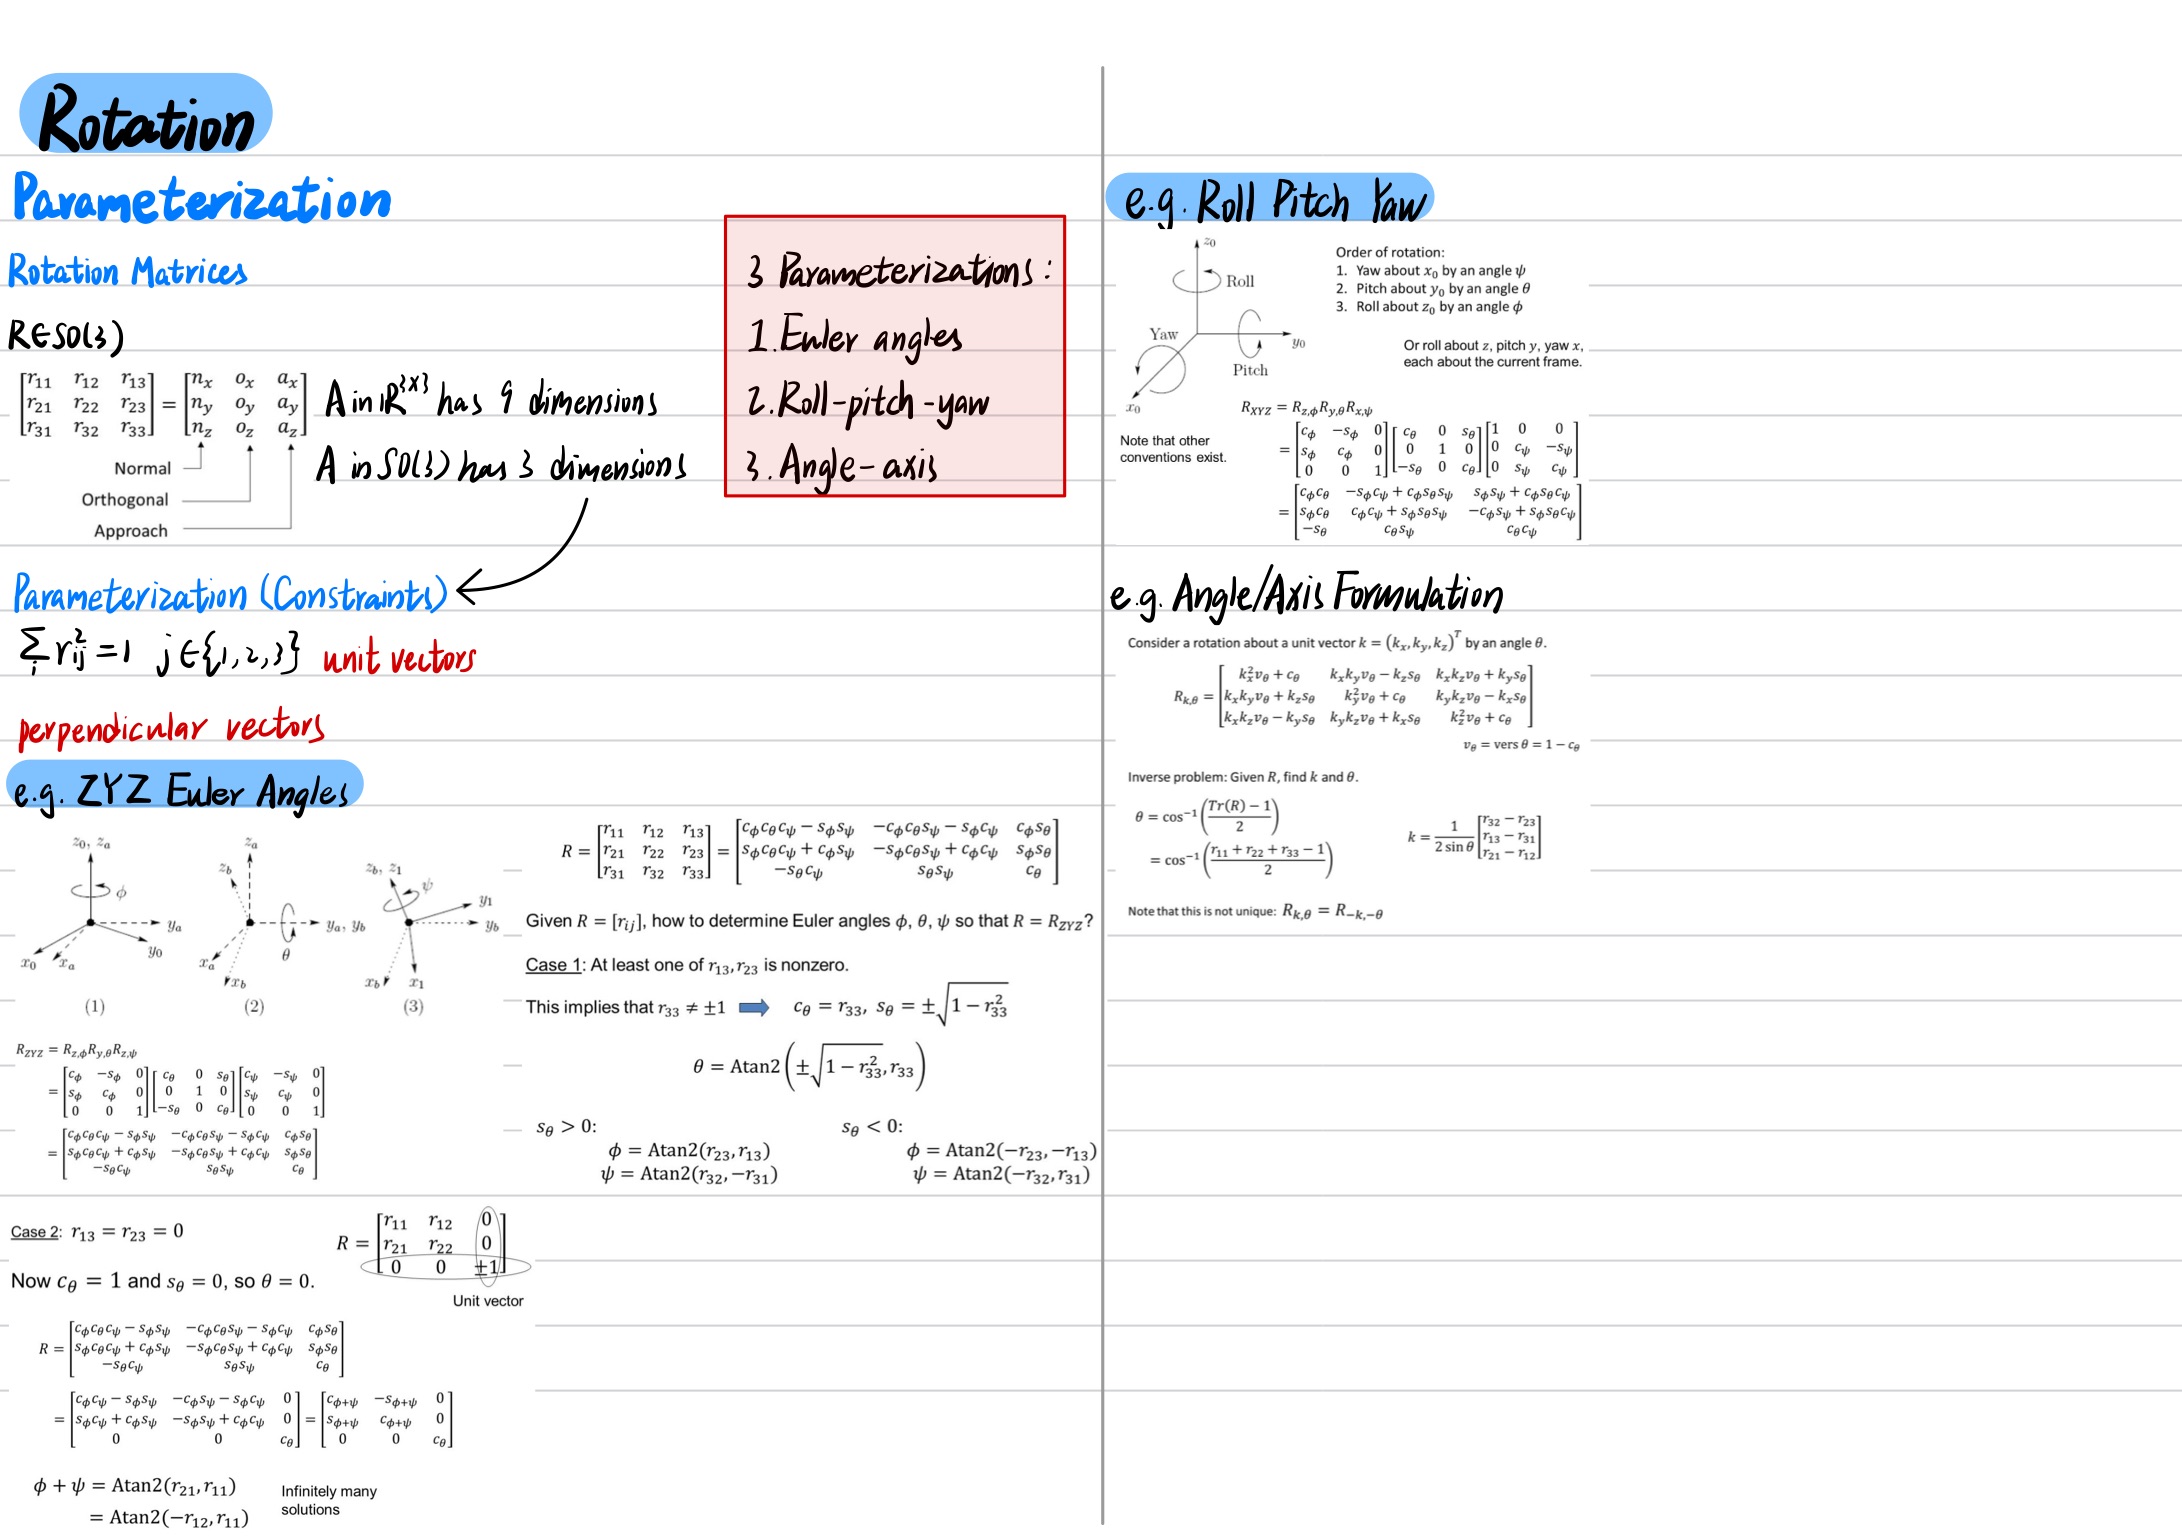 Rotation
Parameterization
Rotation Matrices
R∈SO(3)
[r₁₁ r₁₂ r₁₃; r₂₁ r₂₂ r₂₃; r₃₁ r₃₂ r₃₃] = [nₓ oₓ aₓ; n_y o_y a_y; n_z o_z a_z]
Normal
Orthogonal
Approach
A in ℝ³ˣ³ has 9 dimensions
A in SO(3) has 3 dimensions
3 Parameterizations:
1. Euler angles
2. Roll-pitch-yaw
3. Angle-axis
Parameterization (Constraints)
∑ᵢ r²ᵢⱼ = 1 j∈{1,2,3} unit vectors
perpendicular vectors
e.g. ZYZ Euler Angles
z₀, z_a
ϕ
y_a
y₀
x₀
x_a
(1)
z_a
z_b
y_a, y_b
θ
x_a
x_b
(2)
z_b, z₁
ψ
y₁
y_b
x_b
x₁
(3)
R_ZYZ = R_z,ϕ R_y,θ R_z,ψ
= [c_ϕ −s_ϕ 0; s_ϕ c_ϕ 0; 0 0 1] [c_θ 0 s_θ; 0 1 0; −s_θ 0 c_θ] [c_ψ −s_ψ 0; s_ψ c_ψ 0; 0 0 1]
= [c_ϕ c_θ c_ψ − s_ϕ s_ψ −c_ϕ c_θ s_ψ − s_ϕ c_ψ c_ϕ s_θ; s_ϕ c_θ c_ψ + c_ϕ s_ψ −s_ϕ c_θ s_ψ + c_ϕ c_ψ s_ϕ s_θ; −s_θ c_ψ s_θ s_ψ c_θ]
R = [r₁₁ r₁₂ r₁₃; r₂₁ r₂₂ r₂₃; r₃₁ r₃₂ r₃₃] = [c_ϕ c_θ c_ψ − s_ϕ s_ψ −c_ϕ c_θ s_ψ − s_ϕ c_ψ c_ϕ s_θ; s_ϕ c_θ c_ψ + c_ϕ s_ψ −s_ϕ c_θ s_ψ + c_ϕ c_ψ s_ϕ s_θ; −s_θ c_ψ s_θ s_ψ c_θ]
Given R = [rᵢⱼ], how to determine Euler angles ϕ, θ, ψ so that R = R_ZYZ?
Case 1: At least one of r₁₃, r₂₃ is nonzero.
This implies that r₃₃ ≠ ±1 c_θ = r₃₃, s_θ = ±√(1 − r₃₃²)
θ = Atan2(±√(1 − r₃₃²), r₃₃)
s_θ > 0:
ϕ = Atan2(r₂₃, r₁₃)
ψ = Atan2(r₃₂, −r₃₁)
s_θ < 0:
ϕ = Atan2(−r₂₃, −r₁₃)
ψ = Atan2(−r₃₂, r₃₁)
Case 2: r₁₃ = r₂₃ = 0
R = [r₁₁ r₁₂ 0; r₂₁ r₂₂ 0; 0 0 ±1]
Now c_θ = 1 and s_θ = 0, so θ = 0.
Unit vector
R = [c_ϕ c_θ c_ψ − s_ϕ s_ψ −c_ϕ c_θ s_ψ − s_ϕ c_ψ c_ϕ s_θ; s_ϕ c_θ c_ψ + c_ϕ s_ψ −s_ϕ c_θ s_ψ + c_ϕ c_ψ s_ϕ s_θ; −s_θ c_ψ s_θ s_ψ c_θ]
= [c_ϕ c_ψ − s_ϕ s_ψ −c_ϕ s_ψ − s_ϕ c_ψ 0; s_ϕ c_ψ + c_ϕ s_ψ −s_ϕ s_ψ + c_ϕ c_ψ 0; 0 0 c_θ] = [c_ϕ+ψ −s_ϕ+ψ 0; s_ϕ+ψ c_ϕ+ψ 0; 0 0 c_θ]
ϕ + ψ = Atan2(r₂₁, r₁₁)
= Atan2(−r₁₂, r₁₁)
Infinitely many
solutions
e.g. Roll Pitch Yaw
z₀
Roll
Yaw
y₀
Pitch
x₀
Order of rotation:
1. Yaw about x₀ by an angle ψ
2. Pitch about y₀ by an angle θ
3. Roll about z₀ by an angle ϕ
Or roll about z, pitch y, yaw x,
each about the current frame.
Note that other
conventions exist.
R_XYZ = R_z,ϕ R_y,θ R_x,ψ
= [c_ϕ −s_ϕ 0; s_ϕ c_ϕ 0; 0 0 1] [c_θ 0 s_θ; 0 1 0; −s_θ 0 c_θ] [1 0 0; 0 c_ψ −s_ψ; 0 s_ψ c_ψ]
= [c_ϕ c_θ −s_ϕ c_ψ + c_ϕ s_θ s_ψ s_ϕ s_ψ + c_ϕ s_θ c_ψ; s_ϕ c_θ c_ϕ c_ψ + s_ϕ s_θ s_ψ −c_ϕ s_ψ + s_ϕ s_θ c_ψ; −s_θ c_θ s_ψ c_θ c_ψ]
e.g. Angle/Axis Formulation
Consider a rotation about a unit vector k = (kₓ, k_y, k_z)ᵀ by an angle θ.
R_k,θ = [kₓ² v_θ + c_θ kₓ k_y v_θ − k_z s_θ kₓ k_z v_θ + k_y s_θ; kₓ k_y v_θ + k_z s_θ k_y² v_θ + c_θ k_y k_z v_θ − kₓ s_θ; kₓ k_z v_θ − k_y s_θ k_y k_z v_θ + kₓ s_θ k_z² v_θ + c_θ]
v_θ = vers θ = 1 − c_θ
Inverse problem: Given R, find k and θ.
θ = cos⁻¹((Tr(R) − 1)/2)
= cos⁻¹((r₁₁ + r₂₂ + r₃₃ − 1)/2)
k = 1/(2 sin θ) [r₃₂ − r₂₃; r₁₃ − r₃₁; r₂₁ − r₁₂]
Note that this is not unique: R_k,θ = R_−k,−θ